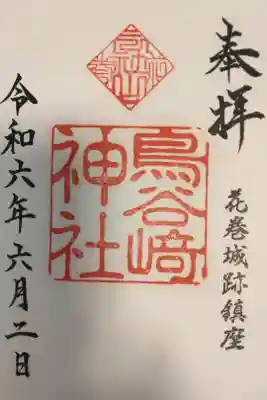 奉拝
花巻城跡鎮座
鳥谷﨑
神社
令和六年六月二日